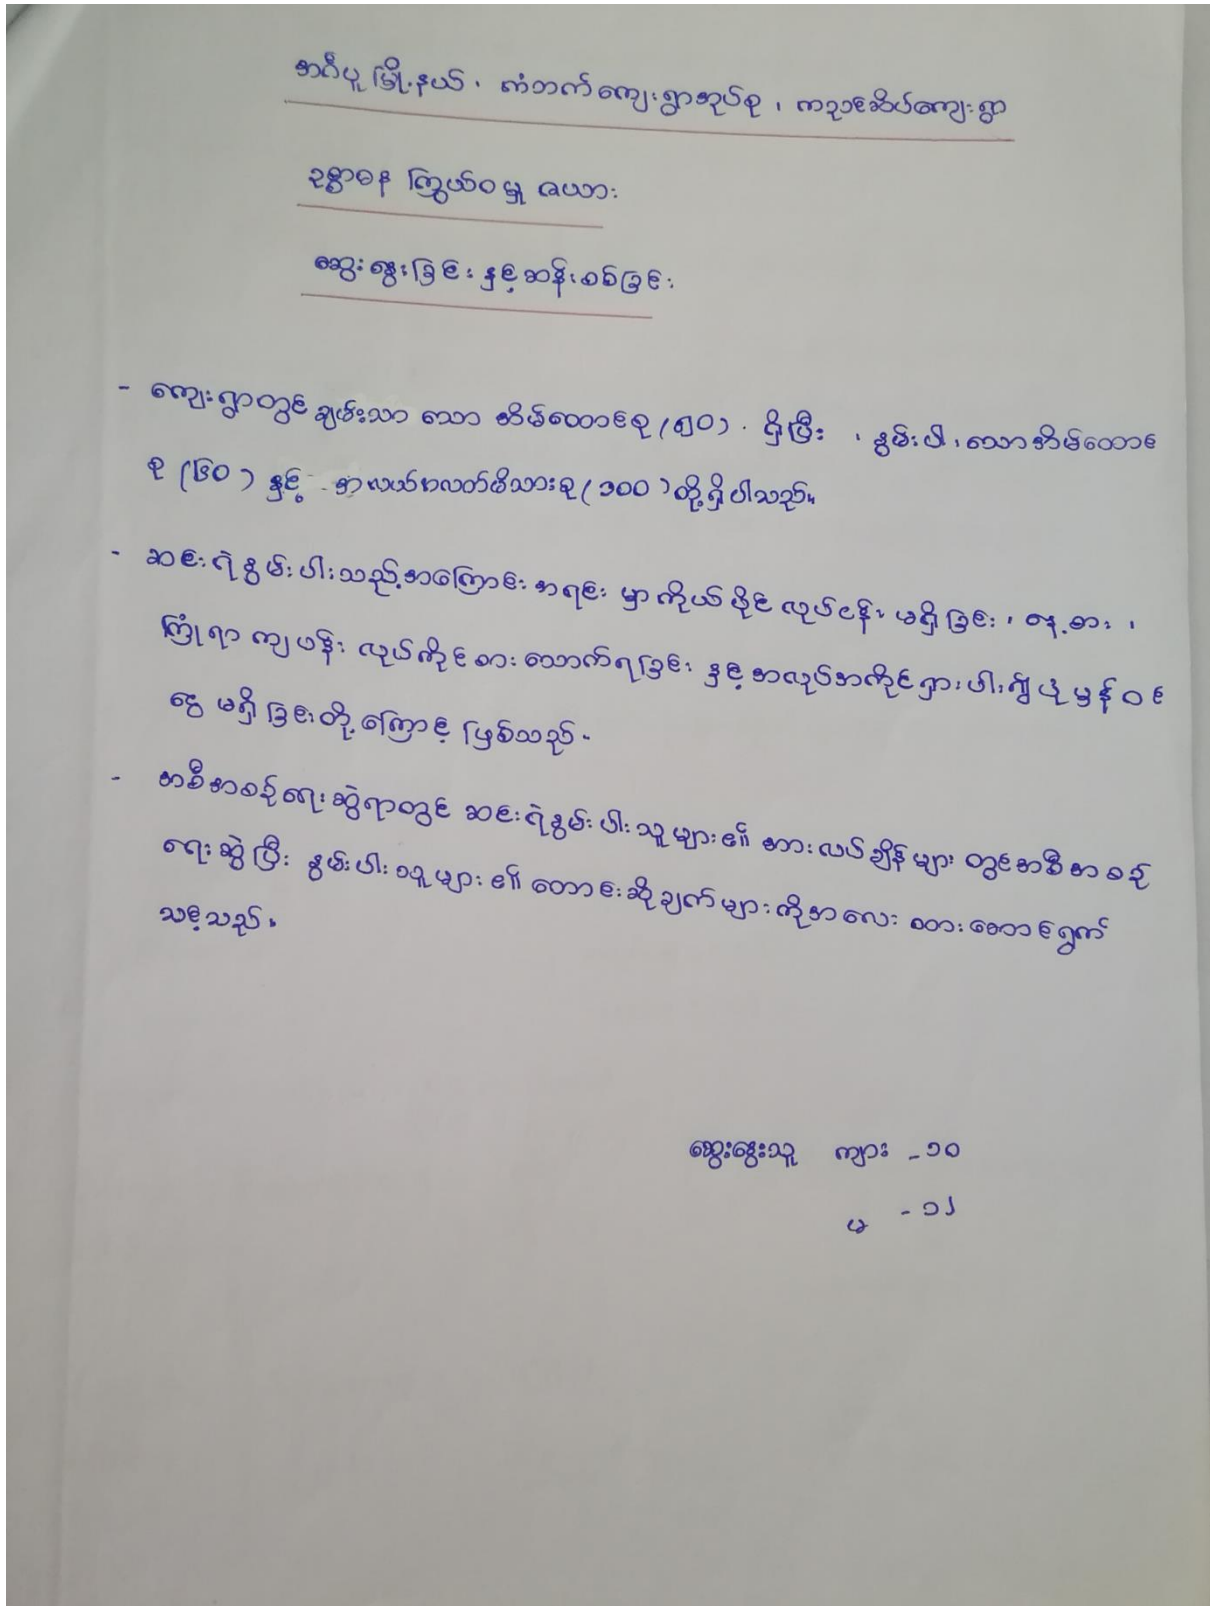 အင်္ဂပူမြို့နယ်၊ ကံဘက်ကျေးရွာအုပ်စု၊ ကညင်ဆိပ်ကျေးရွာ
ဥစ္စာဓန ကြွယ်ဝမှု ဇယား
ဆွေးနွေးခြင်း နှင့်ဆန်းစစ်ခြင်း
- ကျေးရွာတွင် ချမ်းသာ သော အိမ်ထောင်စု (၅၀) ရှိပြီး ၊ နွမ်းပါးသောအိမ်ထောင်
စု (၆၀) နှင့် အလယ်အလတ်မိသားစု (၁၀၀) တို့ရှိပါသည်။
- ဆင်းရဲနွမ်းပါးသည့်အကြောင်းအရင်း မှာကိုယ်ပိုင် လုပ်ငန်း မရှိခြင်း ၊ နေ့စား ၊
ကြုံရာ ကျပန်း လုပ်ကိုင်စားသောက်ရခြင်း နှင့်အလုပ်အကိုင်ရှားပါး၍ ပုံမှန်ဝင်
ငွေ မရှိခြင်းတို့ကြောင့် ဖြစ်သည်။
- အစီအစဉ်ရေးဆွဲရာတွင် ဆင်းရဲနွမ်းပါးသူများ၏ အားလပ်ချိန်များ တွင်အစီအစဉ်
ရေးဆွဲပြီး နွမ်းပါးသူများ၏ တောင်းဆိုချက်များကိုအလေးထားဆောင်ရွက်
သင့်သည်။
ဆွေးနွေးသူ ကျား - ၁၀
မ - ၁၂